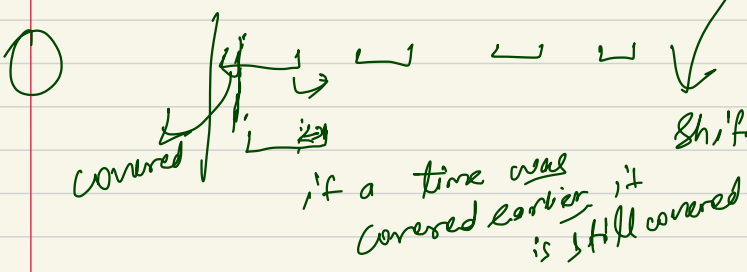 Shif
covered
if a time was
covered earlier, it
is still covered